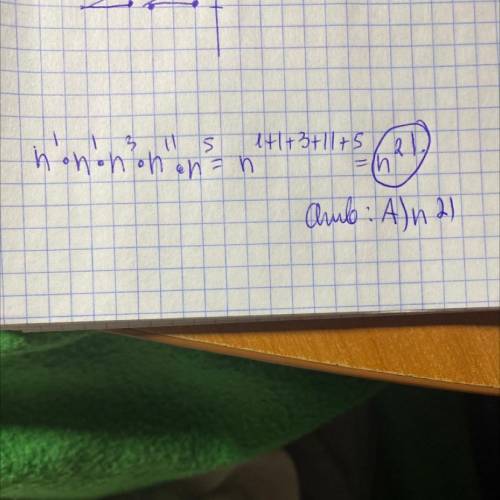 n¹·n¹·n³·n¹¹·n⁵ = n¹⁺¹⁺³⁺¹¹⁺⁵ = n²¹
Отв: А)n 21